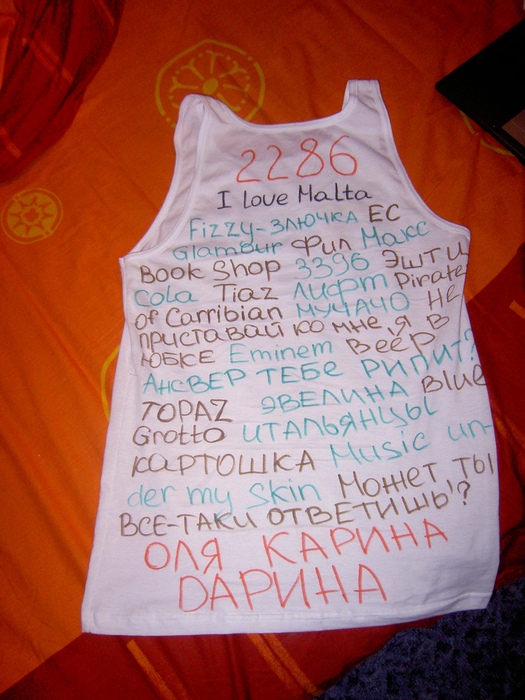 2286
I love Malta
Fizzy-злючка ЕС
Glamour Фил Макс
Book Shop 3396 Эшти
Cola Tiaz лифт Pirate
of Carribian МУЧАЧО НЕ
ПРИСТАВАЙ КО МНЕ, Я В
ЮБКЕ Eminem Beep
АНСВЕР ТЕБЕ РИПИТ?
TOPAZ ЭВЕЛИНА Blue
Grotto ИТАЛЬЯНЦЫ
КАРТОШКА Music un-
der my skin Может ты
ВСЕ-ТАКИ ОТВЕТИШЬ!?
ОЛЯ КАРИНА
DАРИНА